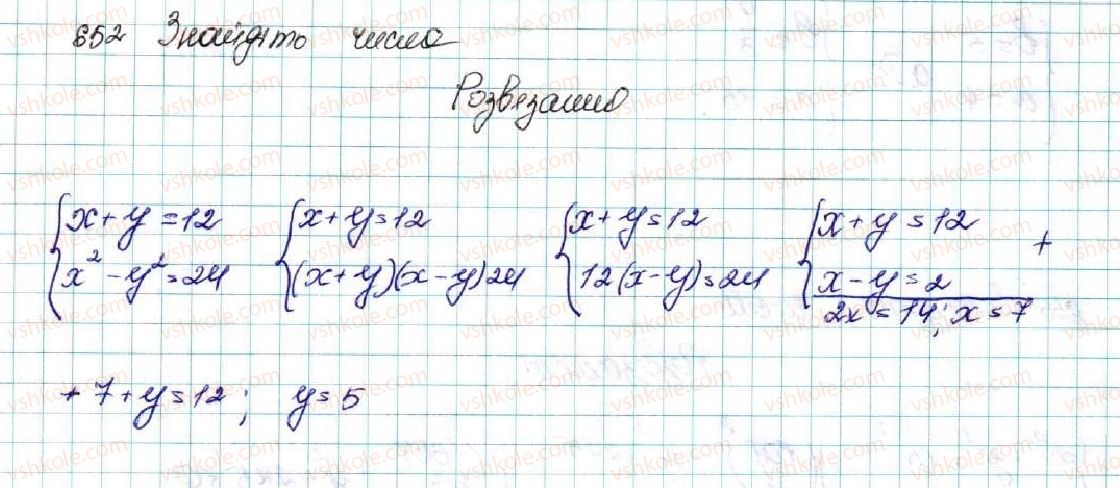 652 Знайдіто числа
Розвязанно
x + y = 12    x + y = 12    x + y = 12    x + y = 12    +
x² - y² = 24    (x + y)(x - y) 24    12(x - y) = 24    x - y = 2
2x = 14; x = 7
+ 7 + y = 12; y = 5
vshkole.com